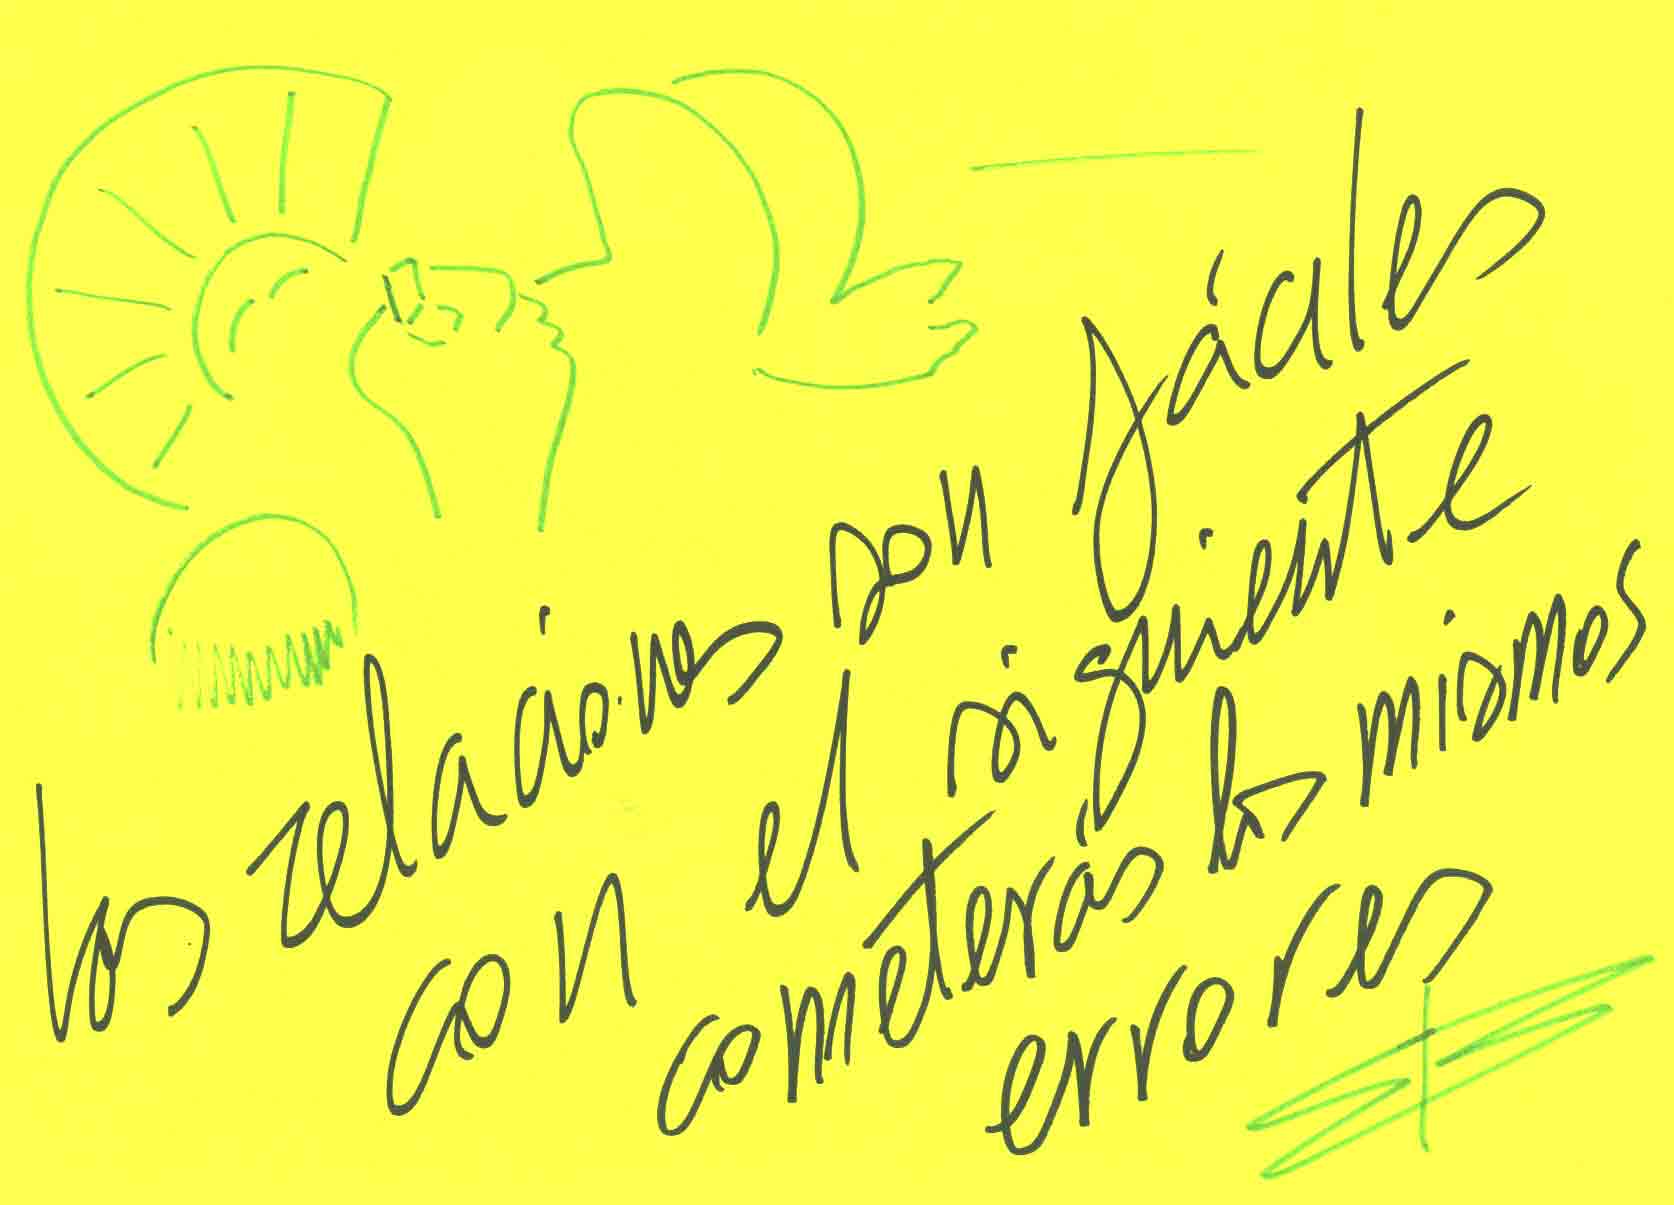 las relaciones son fáciles
con el siguiente
cometerás los mismos
errores